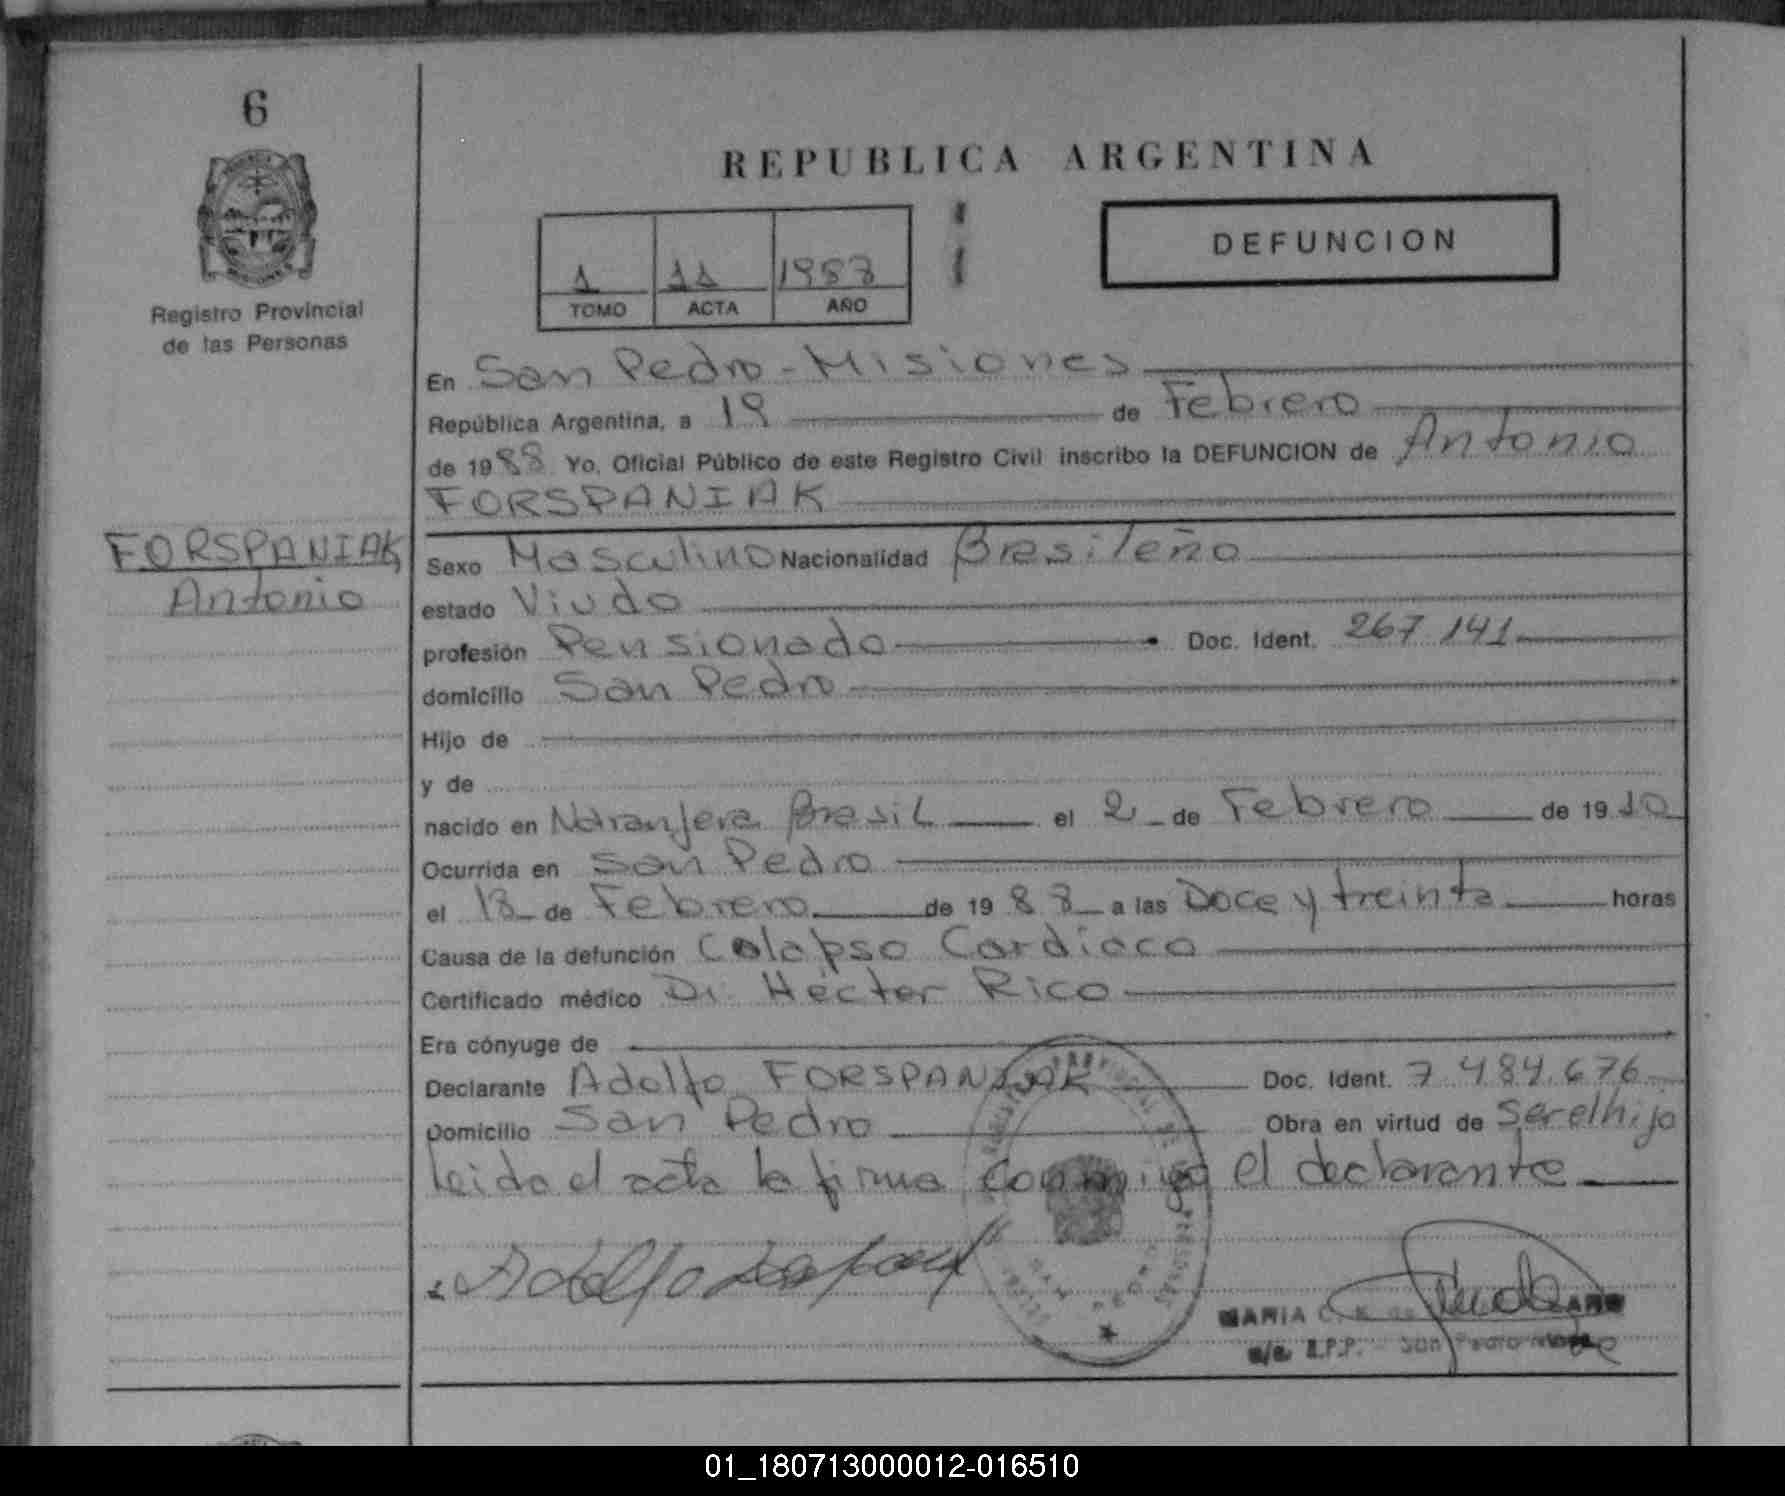 6
REPUBLICA ARGENTINA
DEFUNCION
1 11 1988
TOMO ACTA AÑO
Registro Provincial
de las Personas
En San Pedro - Misiones
República Argentina, a 19 de Febrero
de 1988 Yo, Oficial Público de este Registro Civil inscribo la DEFUNCION de Antonio
FORSPANIAK
FORSPANIAK
Antonio
Sexo Masculino Nacionalidad Brasileño
estado Viudo
profesión Pensionado Doc. Ident. 267 141
domicilio San Pedro
Hijo de
y de
nacido en Naranjera Brasil el 2 de Febrero de 1910
Ocurrida en San Pedro
el 18 de Febrero de 1988 a las Doce y treinta horas
Causa de la defunción Colapso Cardiaco
Certificado médico Dr. Héctor Rico
Era cónyuge de
Declarante Adolfo FORSPANIAK Doc. Ident. 7.484.676
Domicilio San Pedro Obra en virtud de ser el hijo
leida el acta la firma conmigo el declarante
Adolfo
MARIA C.
R.P.P. - San Pedro
01_180713000012-016510